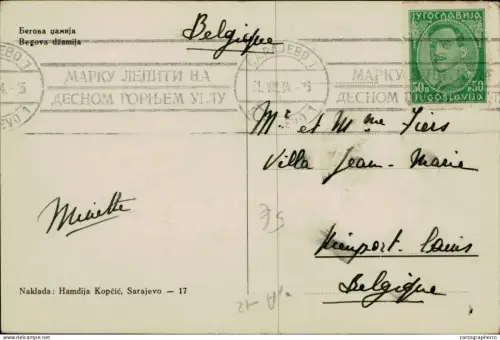 Бегова џамија
Begova džamija
Belgique
САРАЈЕВО 1
МАРКУ ЛЕПИТИ НА
ДЕСНОМ ГОРЊЕМ УГЛУ
SARAJEVO 1
МАРКУ
ДЕСНОМ
ЈУГОСЛАВИЈА
JUGOSLAVIJA
Mr et Mme Fiers
Villa Jean-Marie
Nieuport-bains
Belgique
Minette
35
Naklada: Hamdija Kopčić, Sarajevo — 17
www.delcampe.net
cartographerro